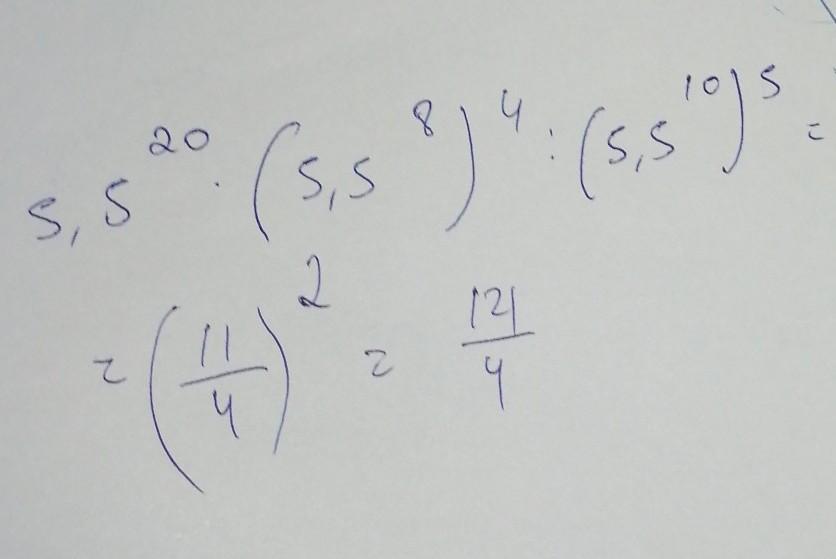 5,5^20 · (5,5^8)^4 : (5,5^10)^5 =
= (11/4)^2 = 121/4